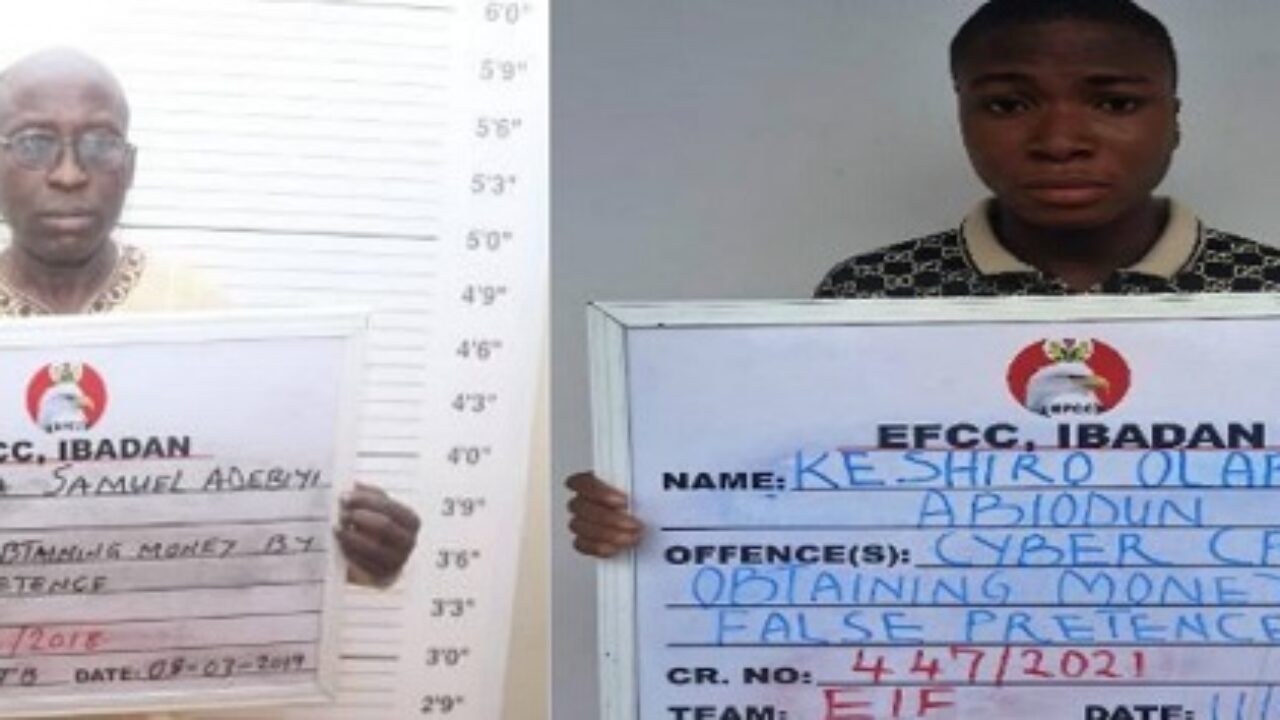 6'0"
5'9"
5'6"
5'3"
5'0"
4'9"
4'6"
4'3"
4'0"
3'9"
3'6"
3'3"
3'0"
2'9"
CC, IBADAN
SAMUEL ADEBIYI
OBTAINING MONEY BY
ETENCE
/2018
DATE: 08-03-2019
EFCC
EFCC, IBADAN
NAME: KESHIRO OLAF
ABIODUN
OFFENCE(S): CYBER CR
OBTAINING MONEY
FALSE PRETENCE
CR. NO: 447/2021
TEAM: EIF DATE: 11/